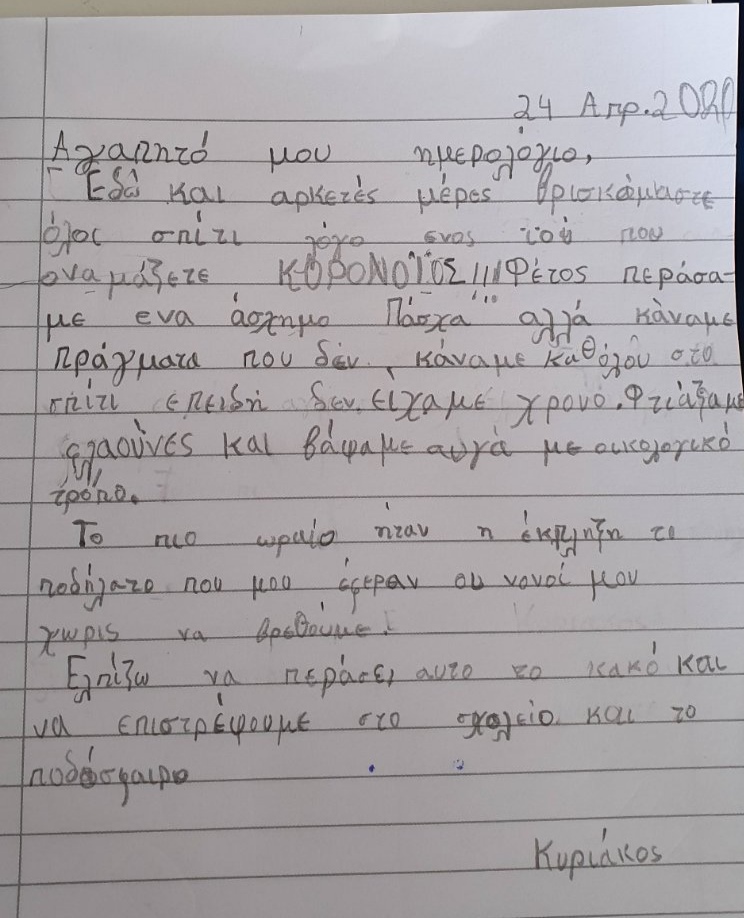 24 Απρ. 2020
Αγαπητό μου ημερολόγιο,
Εδώ και αρκετές μέρες βρισκόμαστε
όλοι σπίτι λόγο ενος ϊού που
ονομάζετε ΚΟΡΟΝΟΪΟΣ!!! Φέτος περάσα-
με ενα άσχημο Πάσχα αλλά κάναμε
πράγματα που δέν κάναμε καθόλου στο
σπίτι επειδή δεν είχαμε χρονο. Φτιάξαμε
φλαούνες και βάψαμε αυγά με οικολογικό
τρόπο.
Το πιο ωραίο ήταν η έκπληξη το
ποδήλατο που μου έφεραν οι νονοί μου
χωρις να βρεθούμε.
Ελπίζω να περάσει αυτο το κακό και
να επιστρέψουμε στο σχολείο και το
ποδόσφαιρο
Κυριάκος